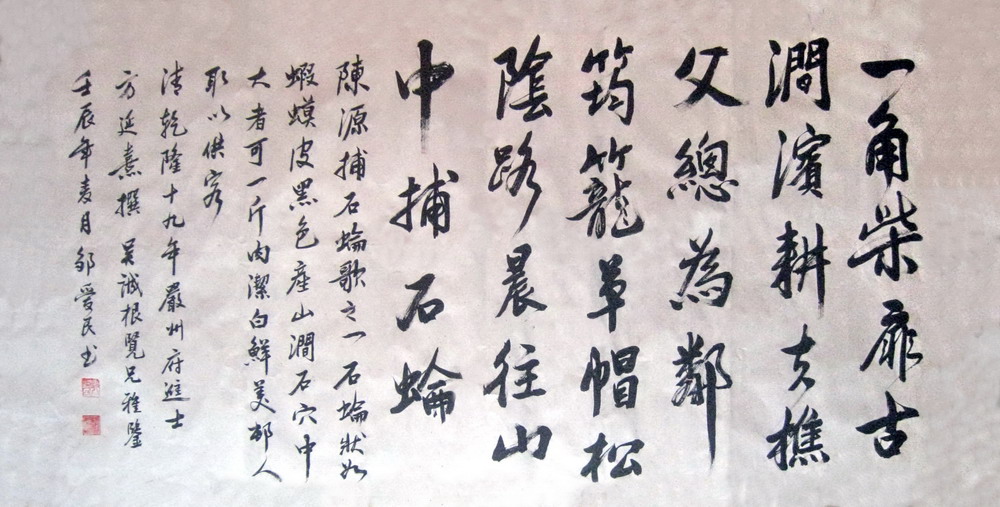 一角柴扉古
澗濱耕夫樵
父總為鄰
筠籠草帽松
陰路晨往山
中捕石蜦
陳源捕石蜦歌之一 石蜦狀如
蝦蟆皮黑色產山澗石穴中
大者可一斤肉潔白鮮美邨人
取以供客
清乾隆十九年嚴州府進士
方廷熹撰 吳誠根覽兄雅鑒
壬辰年麦月 邹爱民书